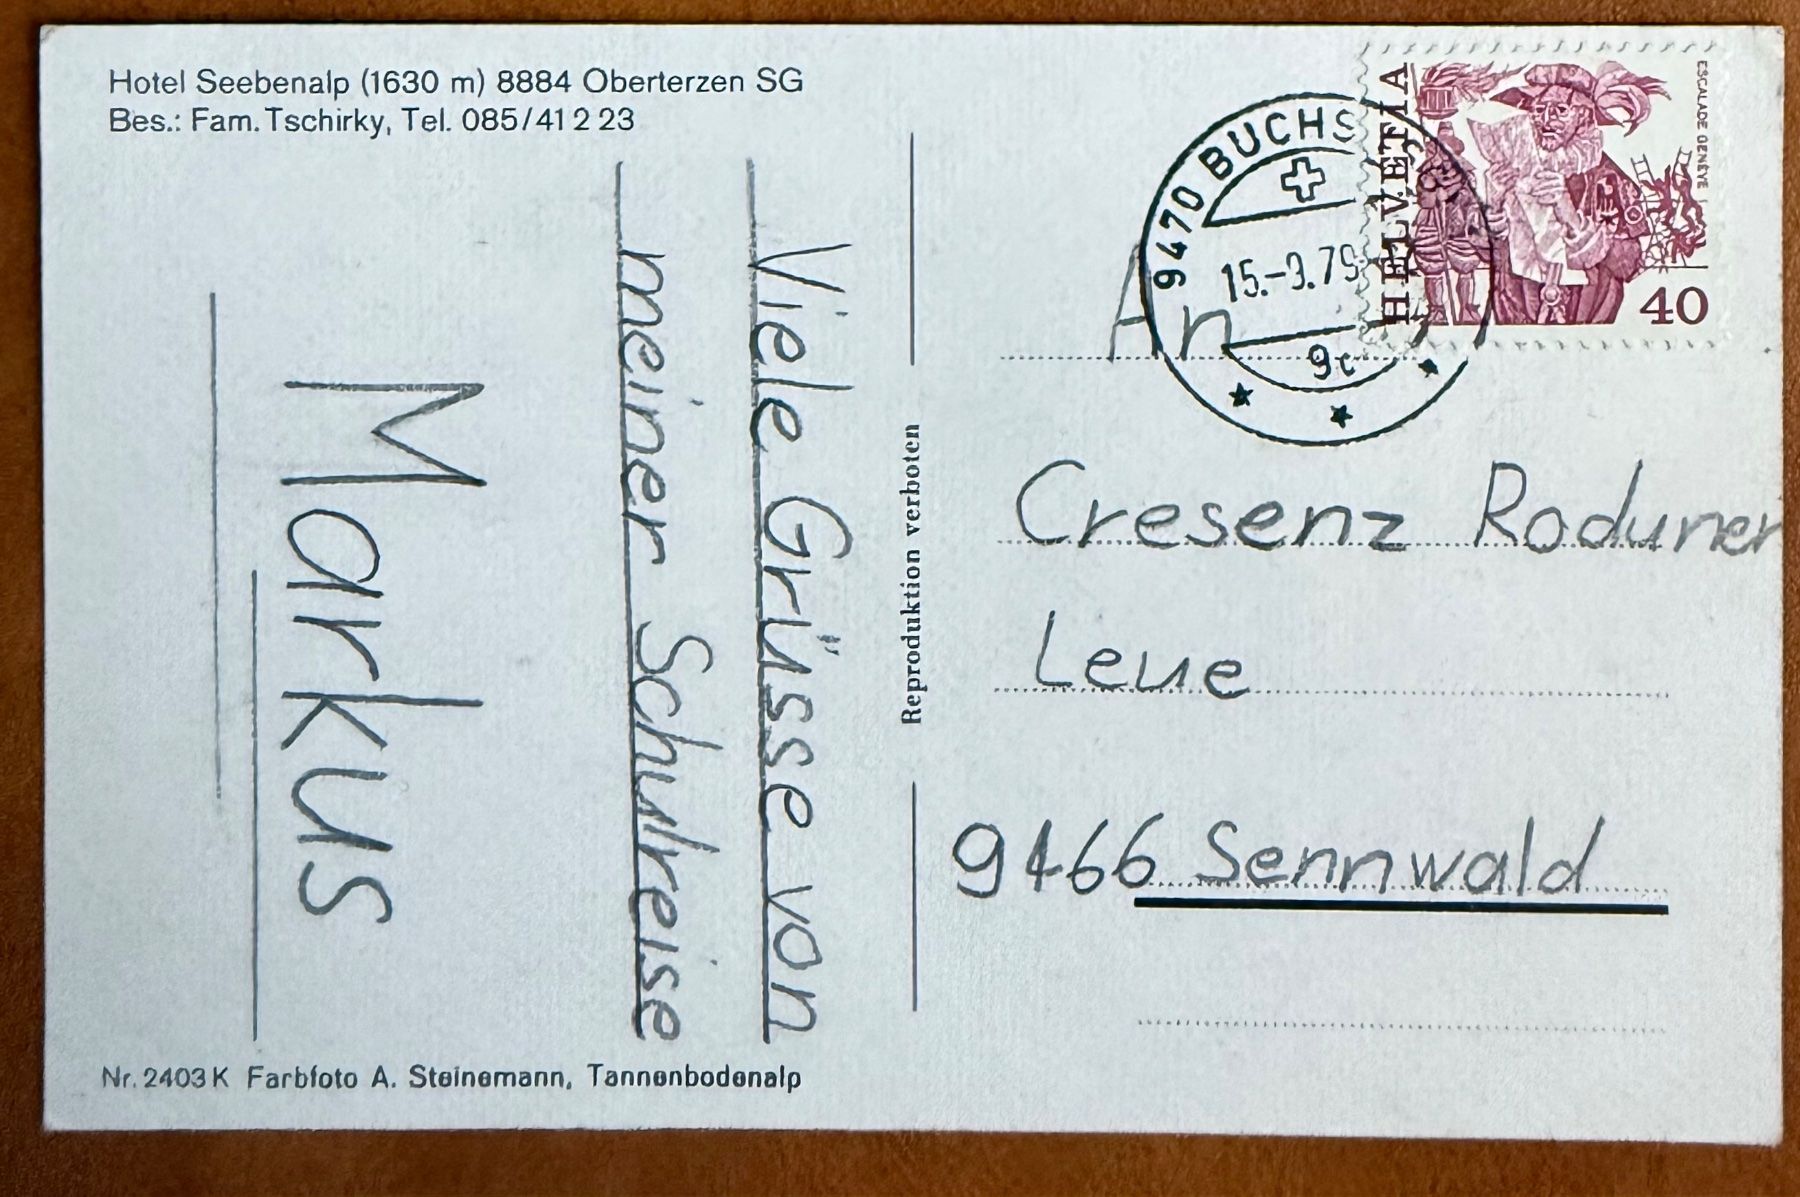 Hotel Seebenalp (1630 m) 8884 Oberterzen SG
Bes.: Fam. Tschirky, Tel. 085/41 2 23
Viele Grüsse von
meiner Schulreise
Markus
Nr. 2403 K Farbfoto A. Steinemann, Tannenbodenalp
Reproduktion verboten
9470 BUCHS
15.-9.79
9c
HELVETIA
ESCALADE GENÈVE
40
An
Cresenz Roduner
Leue
9466 Sennwald